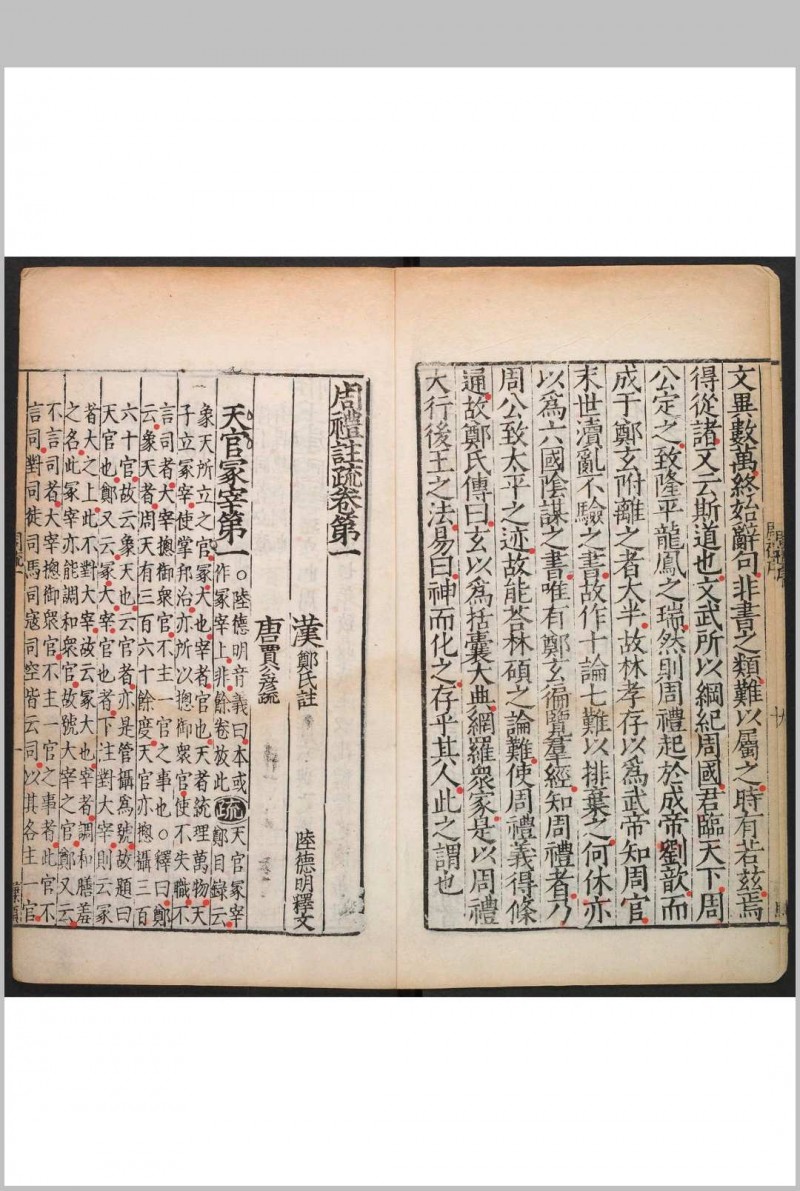 文異數萬終始辭句非書之類難以屬之時有若茲焉
得從諸又云斯道也文武所以綱紀周國君臨天下周
公定之致隆平龍鳳之瑞然則周禮起於成帝劉歆而
成于鄭玄附離之者大半故林孝存以爲武帝知周官
末世瀆亂不驗之書故作十論七難以排棄之何休亦
以爲六國陰謀之書唯有鄭玄徧覽羣經知周禮者乃
周公致太平之迹故能荅林碩之論難使周禮義得條
通故鄭氏傳曰玄以爲括囊大典網羅衆家是以周禮
大行後王之法易曰神而化之存乎其人此之謂也
周禮註疏卷第一
漢鄭氏註 陸德明釋文
唐賈公彦疏
天官冢宰第一 ○陸德明音義曰本或作冢宰上非餘卷放此 疏 天官冢宰鄭目錄云
象天所立之官冢大也宰者官也天者統理萬物天
子立冢宰使掌邦治亦所以摠御衆官使不失職不
言司者大宰摠御衆官不主一官之事也○釋曰鄭
云象天者周天有三百六十餘度天官亦摠攝三百
六十官故云象天也云官者亦是管攝爲號故題曰
天官也鄭又云冢大宰官也者下注對大宰則云冢
者大之上此不對大宰故云冢大也宰者調和膳羞
之名此冢宰亦能調和衆官故號大宰之官鄭又云
不言司者大宰摠御衆官不主一官之事者此官不
言司對司徒司馬司寇司空皆云司以其各主一官